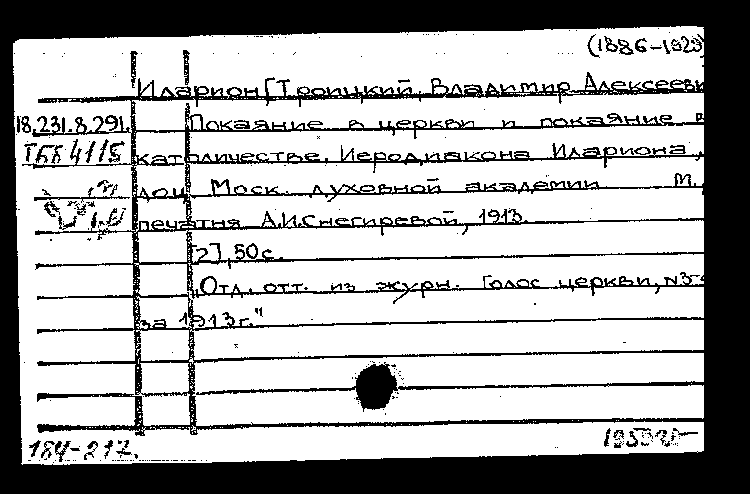 (1886-1929)
Иларион [Троицкий, Владимир Алексееви
18.231.8.291. Покаяние в церкви и покаяние в
ТБ84115 католичестве. Иеродиакона Илариона,
доц. Моск. духовной академии М.,
печатня А.И.Снегиревой, 1913.
[2], 50 с.
„Отд. отт. из журн. Голос церкви, №3-
за 1913 г."
184-217.